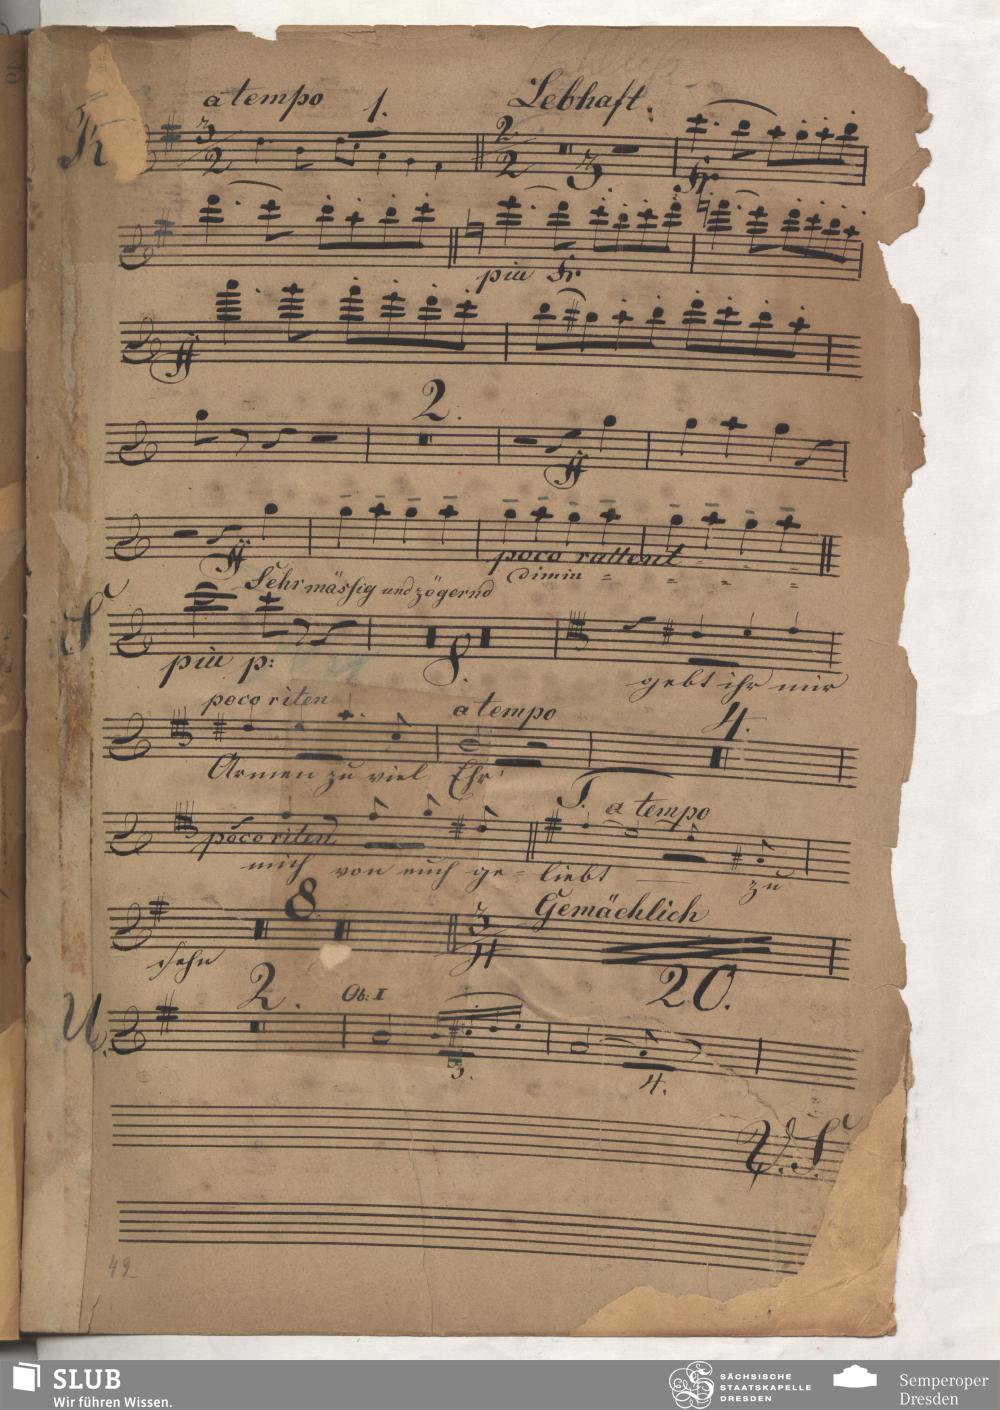 a tempo 1. Lebhaft.
R 3/2 2/2 3 fr
piu fr.
ff
2.
ff
ff poco rattent
dimin
Sehr mässig und zögernd
S
piu p: 8.
gebt ihr mir
poco riten a tempo 4.
Armen zu viel Ehr'
T. a tempo
poco riten
mich von euch geliebt zu
8. 3/4 Gemächlich
sehn 20.
U. 2. Ob: I
3. 4.
V. S.
49
SLUB
Wir führen Wissen.
SÄCHSISCHE
STAATSKAPELLE
DRESDEN
Semperoper
Dresden